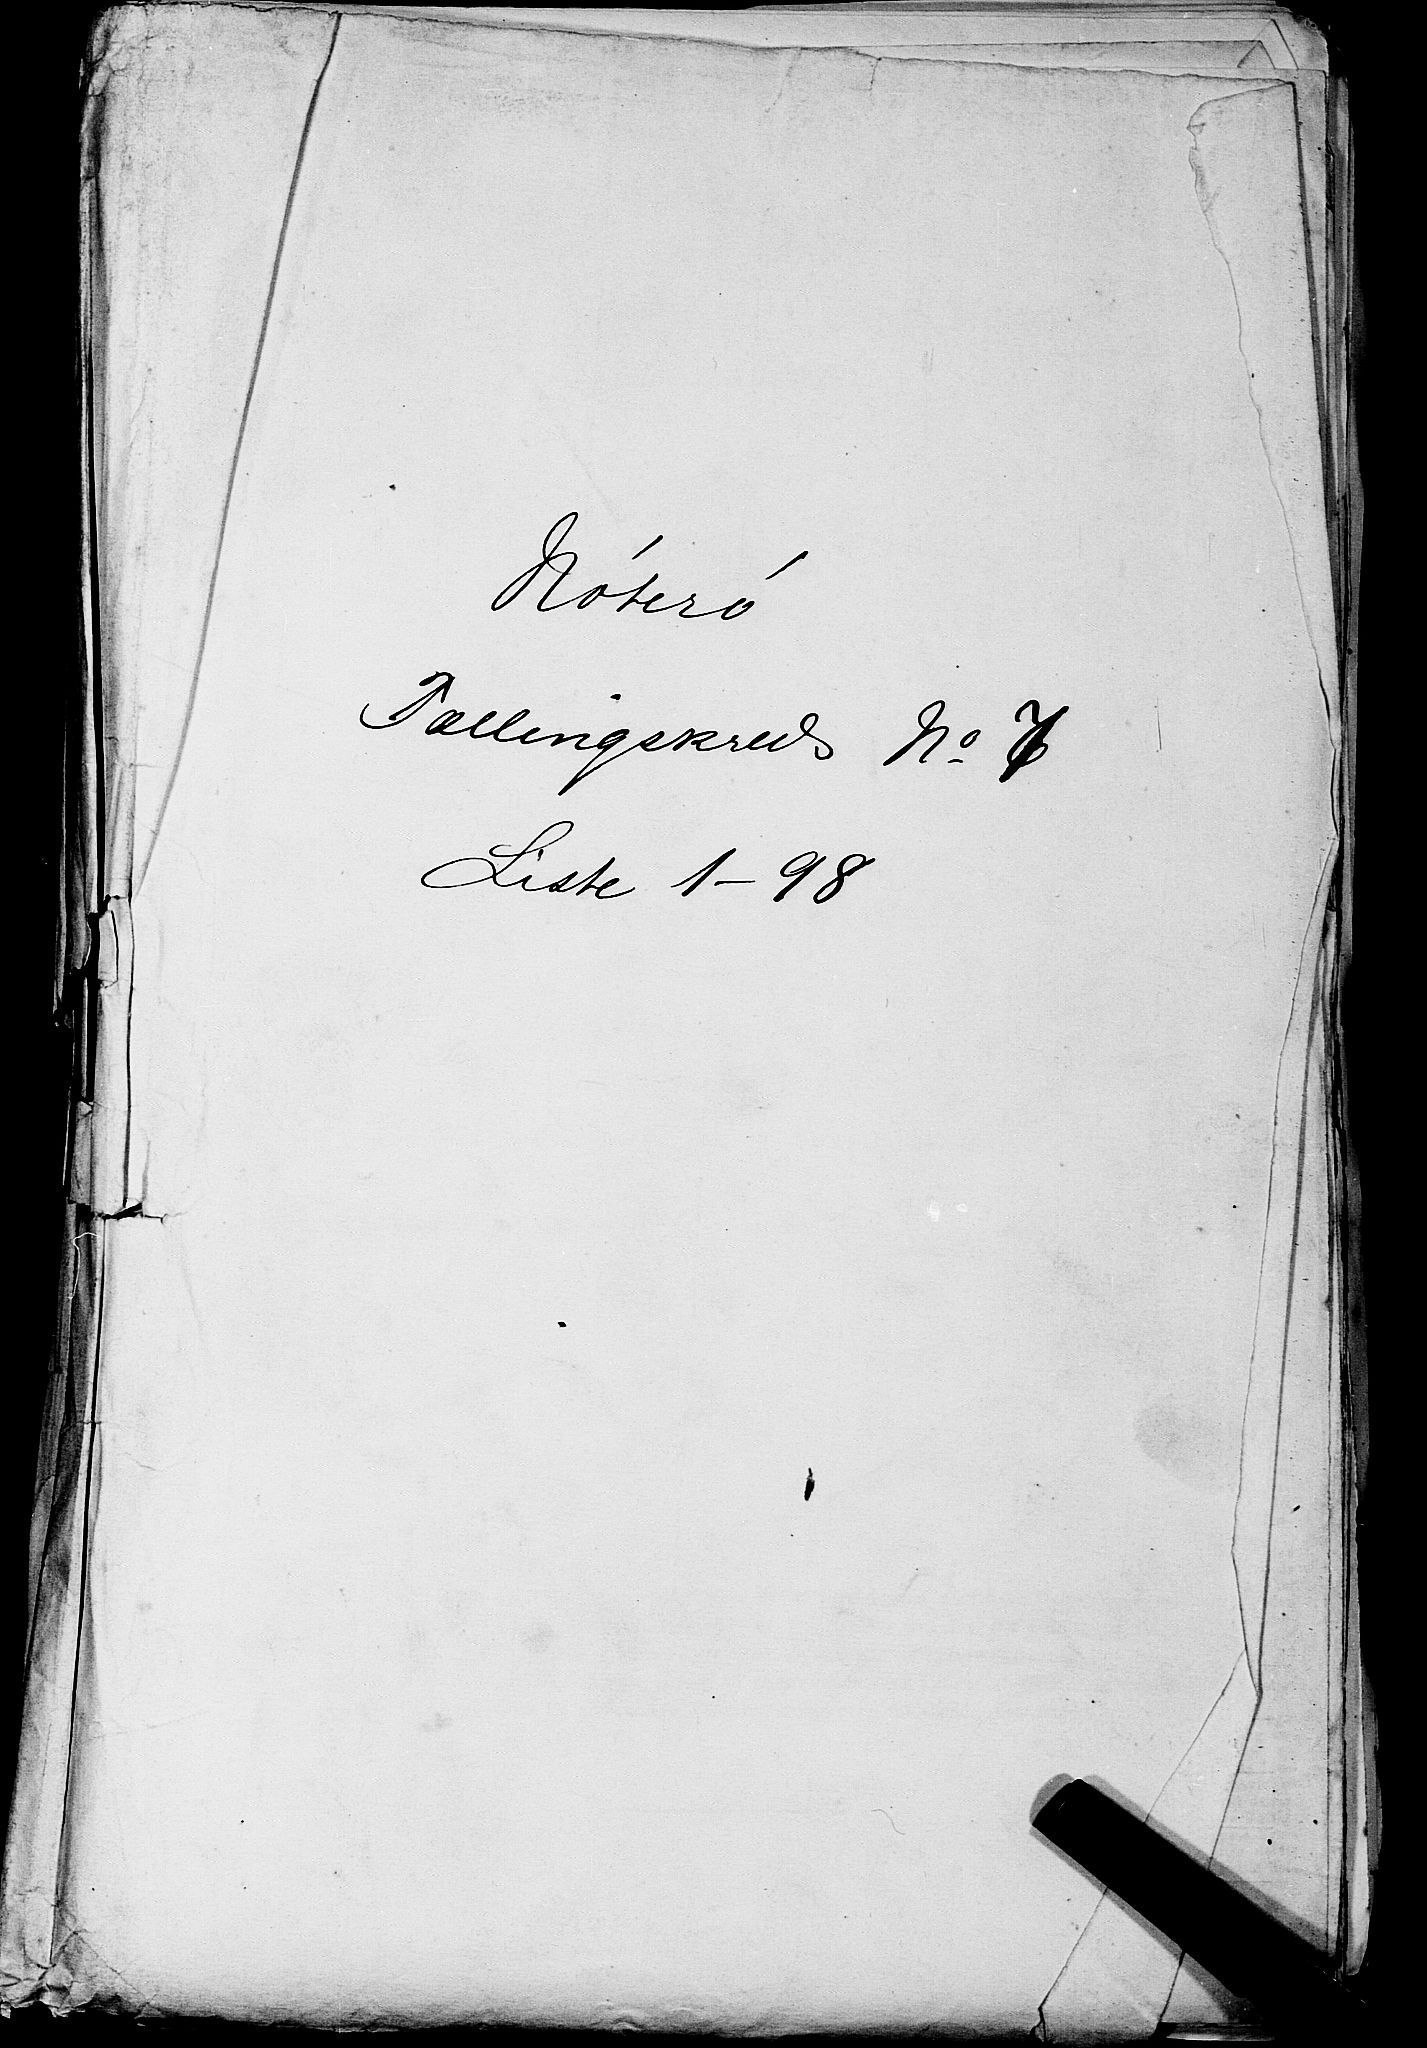 Nóteró
Tællingskreds No 7
Liste 1-98